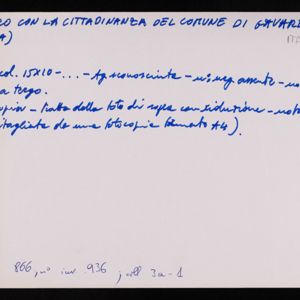 CO CON LA CITTADINANZA DEL COMUNE DI GAVAR
A)
col. 15x10 - ... - Ag. sconosciuta - n: neg. assente - no
a tergo.
copia - tratta dalla foto di sopra con riduzione - nota
ritagliata da una fotocopia formato A4).
866, n° inv. 936 ; coll 3a-1